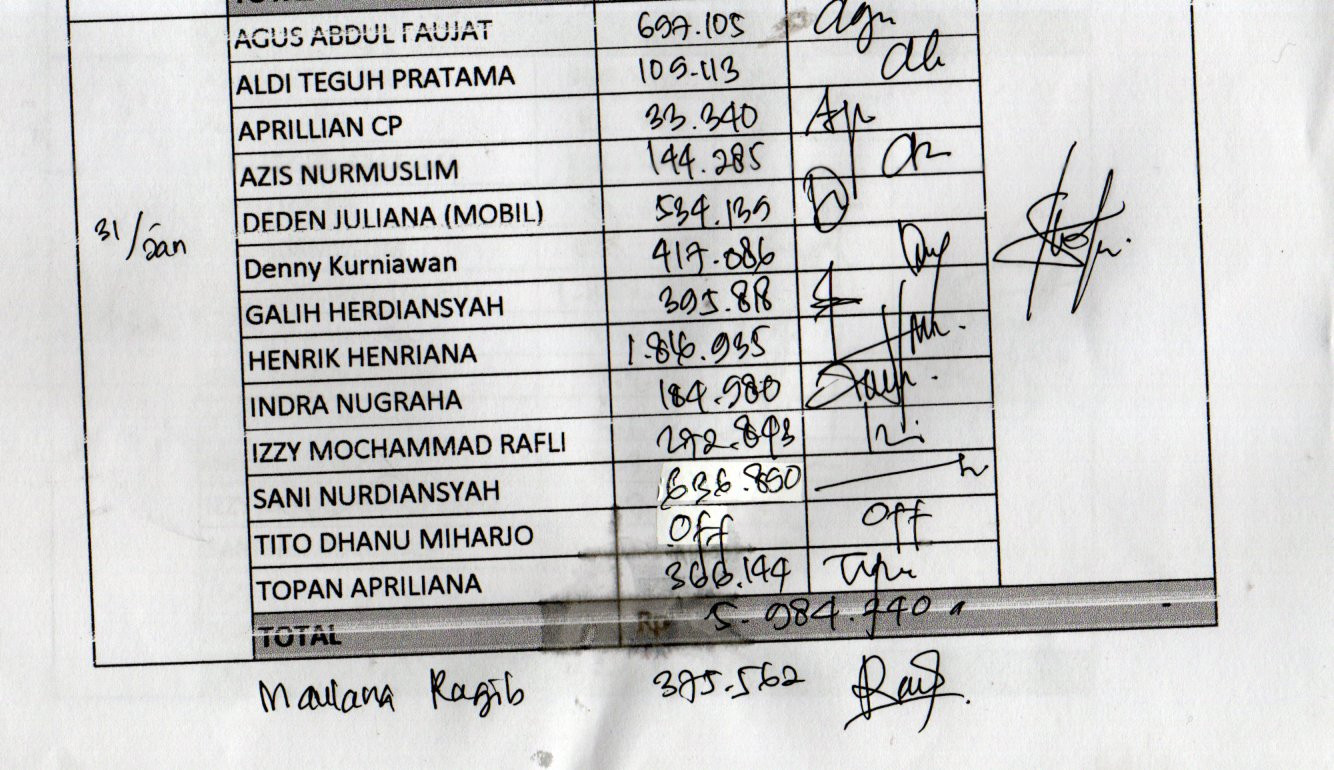 AGUS ABDUL FAUJAT 697.105 Agu
ALDI TEGUH PRATAMA 109.113 al
APRILLIAN CP 33.340 Ap
AZIS NURMUSLIM 144.285 az
DEDEN JULIANA (MOBIL) 534.139
31/Jan
Denny Kurniawan 417.086
GALIH HERDIANSYAH 395.818
HENRIK HENRIANA 1.816.935
INDRA NUGRAHA 184.980
IZZY MOCHAMMAD RAFLI 272.843
SANI NURDIANSYAH 636.850
TITO DHANU MIHARJO Off Off
TOPAN APRILIANA 366.144
TOTAL Rp 5.984.240 -
Maulana Ragib 375.562